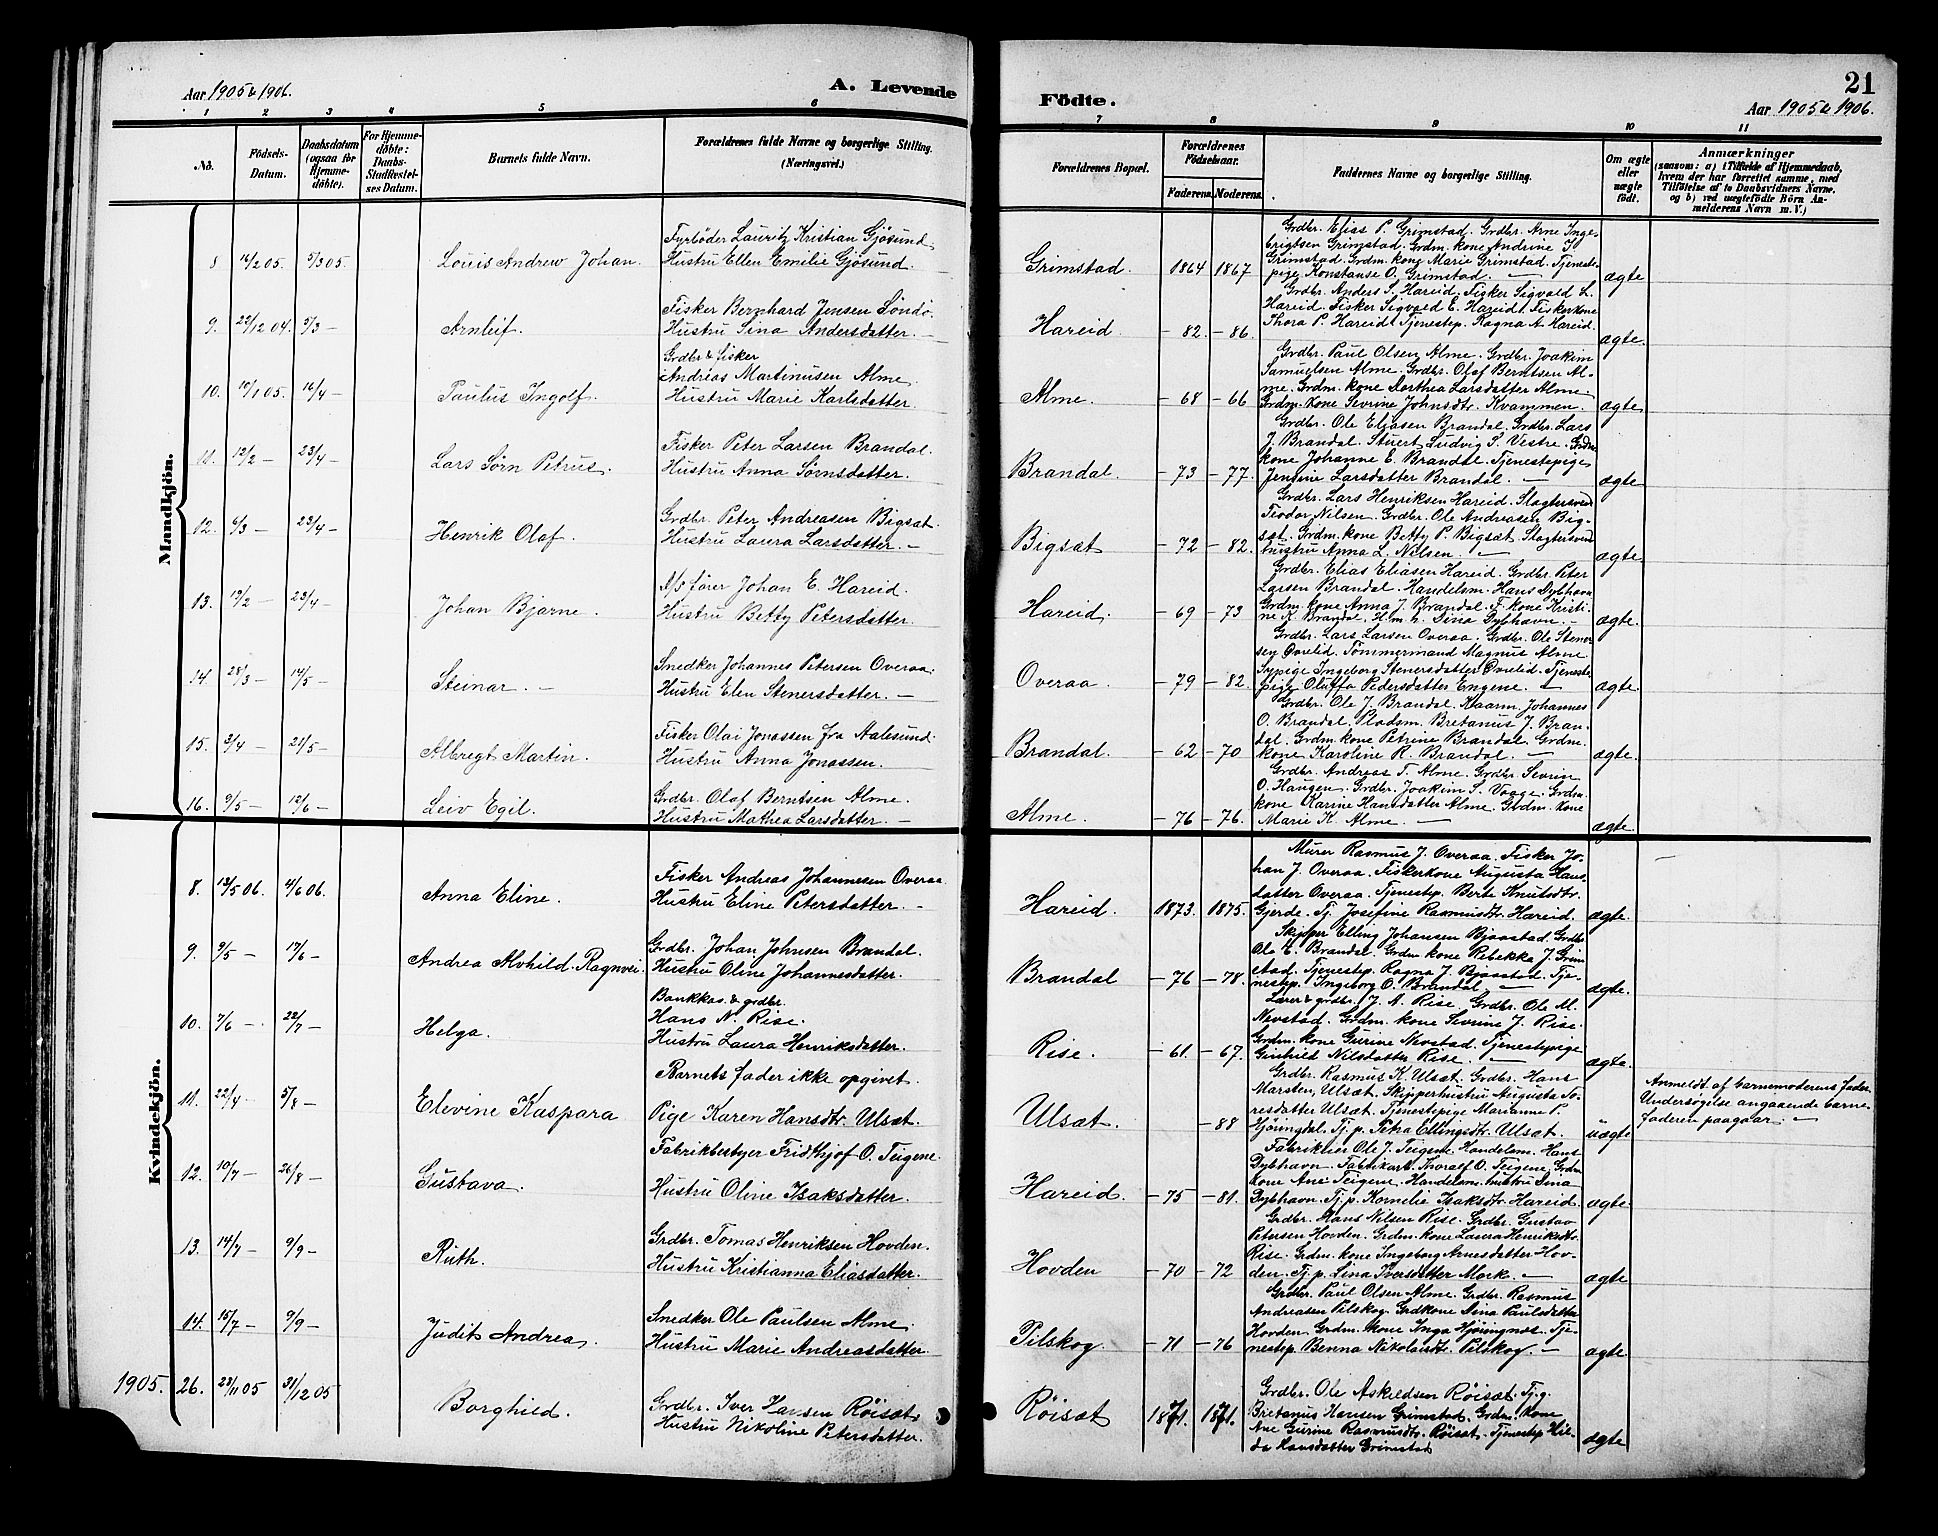 21
Aar 1905 & 1906. A. Levende Födte. Aar 1905 & 1906.
1 2 3 4 5 6 7 8 9 10 11
No.
Födsels-Datum.
Daabsdatum (ogsaa for Hjemmedöbte).
For Hjemmedöbte: Daabs-Stadfæstelses Datum.
Barnets fulde Navn.
Forældrenes fulde Navne og borgerlige Stilling. (Næringsvei.)
Forældrenes Bopæl.
Forældrenes Födselsaar.
Faderens. Moderens.
Faddernes Navne og borgerlige Stilling.
Om ægte eller uægte födt.
Anmærkninger
(saasom: a) i Tilfælde af Hjemmedaab,
hvem der har forrettet samme, med
Tilföielse af to Daabsvidners Navne.
og b) ved uægtefödte Börn An-
melderens Navn m. V.)
Mandkjön.
8 16/2 05. 5/3 05 Louis Andrew Johan.
Fyrbøder Lauritz Kristian Gjøsund
Hustru Ellen Emilie Gjøsund.
Grimstad. 1864 1867
Grdbr. Eliss P. Grimstad. Grdbr. Arne Inge-
brigtsen Grimstad. Grdm. kone Andrine J.
Grimstad. Grdm. kone Marie Grimstad. Tjeneste-
pige Konstanse O. Grimstad. —
ægte
9. 22/12 04. 5/3 — Arnleif.
Fisker Bernhard Jensen Søndø.
Hustru Sina Andersdatter. —
Hareid — 82 — 86.
Grdbr. Anders S. Hareid. Fisker Sigvald L.
Hareid. Fisker Sigvald E. Hareid. Fiskerkone
Thora P. Hareid. Tjenestep. Ragna A. Hareid.
ægte.
10. 10/1 05. 16/4 — Paulus Ingolf.
Grdbr & fisker
Andreas Martinusen Alme.
Hustru Marie Karlsdatter.
Alme. — 68 — 66
Grdbr. Paul Olsen Alme. Grdbr. Joakim
Samuelsen Alme. Grdbr. Olaf Berntsen Al-
me. Grdm. kone Dorthea Larsdatter Alme
Grdm. kone Sevrine Johnsdtr. Kvammen.
ægte
11. 12/2 — 23/4 — Lars Sørn Petrus.
Fisker Peter Larsen Brandal.
Hustru Anna Sørnsdatter.
Brandal. — 73 — 77.
Grdbr. Ole Eliasen Brandal. Grdbr. Lars
J. Brandal. Stuert Ludvig S. Vestre. Grdm
kone Johanne E. Brandal. Tjenestepige
Jensine Larsdatter Brandal. —
ægte
12. 6/3 — 23/4 — Henrik Olaf.
Grdbr. Peter Andreasen Bigsat.
Hustru Laura Larsdatter. —
Bigsæt — 72 — 82.
Grdbr. Lars Henriksen Hareid. Slagtersvend
Teodor Nilsen. Grdbr. Ole Andreasen Big-
sat. Grdm. kone Betty P. Bigsæt. Slagtersvend
hustru Anna L. Nilsen. —
ægte
13. 19/2 — 23/4 — Johan Bjarne.
A/s fører Johan E. Hareid.
Hustru Betty Petersdatter.
Hareid. — 69 — 73
Grdbr. Elias Eliasen Hareid. Grdbr. Peter
Larsen Brandal. Handelsm. Hans Dybhavn
Grdm. kone Anna J. Brandal. F. kone Kristi-
ne K. Brandal. H.m.h. Sina Dybhavn. —
ægte.
14. 28/3 — 14/5 — Steinar. —
Snedker Johannes Petersen Overaa.
Hustru Elen Stenersdatter. —
Overaa — 79 — 82.
Grdbr. Lars Larsen Overaa. Grdbr. Ole Stener
sen Øvrelid. Tømmermand Magnus Alme
Sypige Ingeborg Stenersdatter Øvrelid. Tjeneste
pige Oluffa Pedersdatter Engene. —
ægte.
15. 2/4 — 21/5 — Albregt Martin.
Fisker Olai Jonassen fra Aalesund.
Hustru Anna Jonassen.
Brandal. — 62 — 70
Grdbr. Ole J. Brandal. Kaarm. Johannes
O. Brandal. Pladsm. Bretanus J. Bran-
dal. Grdm. kone Petrine Brandal. Grdm.
kone Karoline R. Brandal. —
ægte.
16. 9/5 — 12/6 — Leiv Egil.
Grdbr. Olaf Berntsen Alme.
Hustru Mathea Larsdatter. —
Alme. — 76 — 76.
Grdbr. Andreas T. Alme. Grdbr. Sevrin
O. Haugen. Grdbr. Joakim S. Vaage. Grdm.
kone Karine Hansdatter Alme. Grdm. kone
Marie K. Alme. —
ægte.
Kvindekjön.
8. 13/5 06. 4/6 06. Anna Eline.
Fisker Andreas Johannesen Overaa.
Hustru Eline Petersdatter. —
Hareid. 1873. 1875.
Murer Rasmus J. Overaa. Fisker Jo-
han J. Overaa. Fiskerkone Augusta Hans-
datter Overaa. Tjenestep. Berte Knutsdtr.
Gjerde. Tj. Josefine Rasmusdtr. Hareid.
ægte.
9. 9/5 — 17/6 — Andrea Alvhild Ragnvei.
Grdbr. Johan Johnsen Brandal.
Hustru Oline Johannesdatter.
Brandal — 76 — 78.
Skipper Elling Johansen Bjaastad. Grdbr
Ole E. Brandal. Grdm kone Rebekka J. Grim
stad. Tjenestep. Ragna J. Bjaastad. Tje-
nestep. Ingeborg O. Brandal. —
ægte.
10. 7/6 — 22/7 — Helga.
Bankkas. & grdbr.
Hans N. Rise.
Hustru Laura Henriksdatter.
Rise. — 61. — 67.
Lærer & grdbr. J. A. Rise. Grdbr. Ole M.
Nevstad. Grdm. kone Sevrine J. Rise.
Grdm. kone Gurine Nevstad. Tjenestepige
Ginhild Nilsdatter Rise. —
ægte.
11. 22/4 — 5/8 — Elevine Kaspara
Barnets fader ikke opgivet.
Pige Karen Hansdtr. Ulsæt.
Ulsat. — 88
Grdbr. Rasmus K. Ulsat. Grdbr. Hans
Marsten, Ulsæt. Skipperhustru Augusta To-
resdatter Ulsæt. Tjenestepige Marianne P.
Hjøringdal. Tj. p. Petra Ellingsdtr. Ulsat.
uægte
Anmeldt af barnemoderens fader.
Undersøgelse angaaende barne-
faderen paagaar. —
12. 10/7 — 26/8 — Gustava.
Fabrikbestyer Fridthjof O. Teigene.
Hustru Oline Isaksdatter.
Hareid. — 75 — 81.
Fabrikeier Ole J. Teigene. Handelsm. Hans
Dybhavn. Fabrikarb. Thoralf O. Teigene. Grdm
kone Ane Teigene. Handelsm. hustru Sina
Dybhavn. Tj. p. Kornelie Isaksdtr. Hareid.
ægte.
13. 14/7 — 9/9 — Ruth.
Grdbr. Tomas Henriksen Hovden.
Hustru Kristianna Eliasdatter.
Hovden — 70 — 72
Grdbr. Hans Nilsen Rise. Grdbr. Gustav
Petersen Hovden. Grdm. kone Laura Henriksdtr.
Rise. Grdm. kone Ingeborg Arnesdatter Hov-
den. Tj. p. Lina Iversdatter Mork. —
ægte
14. 15/7 — 9/9 — Judit Andrea.
Snedker Ole Paulsen Alme.
Hustru Marie Andreasdatter.
Pilskog. — 71 — 76
Grdbr. Paul Olsen Alme. Grdbr. Rasmus
Andreasen Pilskog. Grdkone Nina Paulsdatter
Hovden. Grdm. kone Inga Hjøringnes. Tje-
nestep. Benna Nikolaidtr. Pilskog. —
ægte
1905. 26. 23/11 05 31/12 05 Borghild.
Grdbr. Iver Hansen Røisæt.
Hustru Nikoline Petersdatter.
Røisæt 1871. 1871.
Grdbr. Ole Askildsen Røisæt. Tj.g.
Bretanus Hansen Grimstad. Grdm. kone
Ane Gurine Rasmusdtr. Røisat. Tjenestep Hil-
da Hansdatter Grimstad
ægte